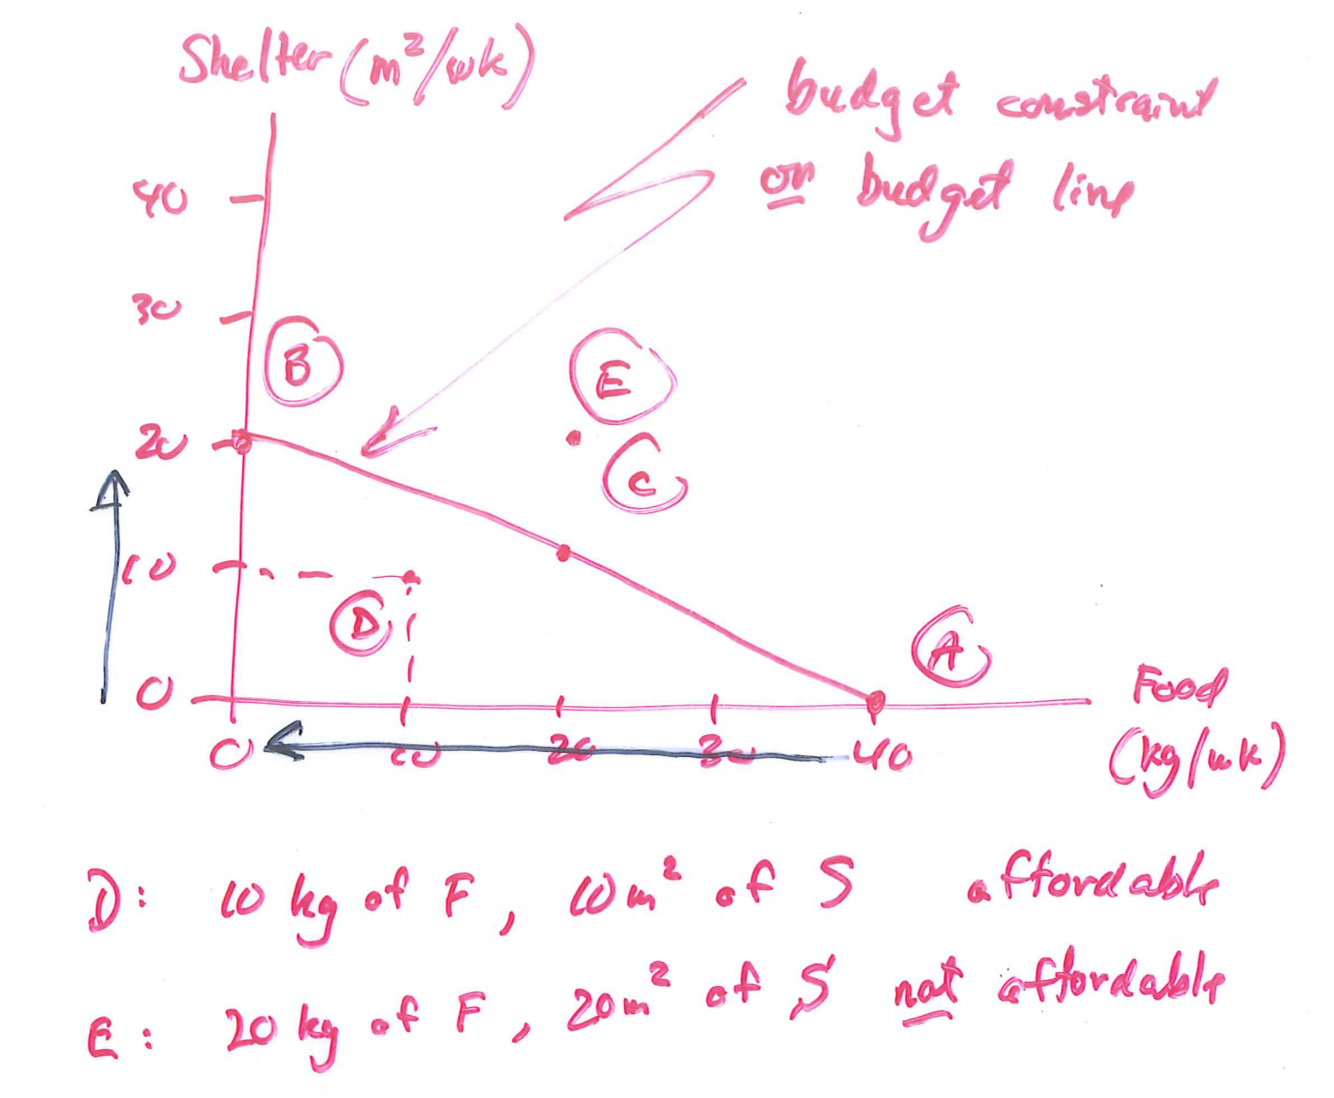 Shelter (m²/wk)
budget constraint
or budget line
40
30
B
E
20
C
10
D
A
0
Food
0 10 20 30 40
(kg/wk)
D: 10 kg of F, 10m² of S affordable
E: 20 kg of F, 20m² of S not affordable